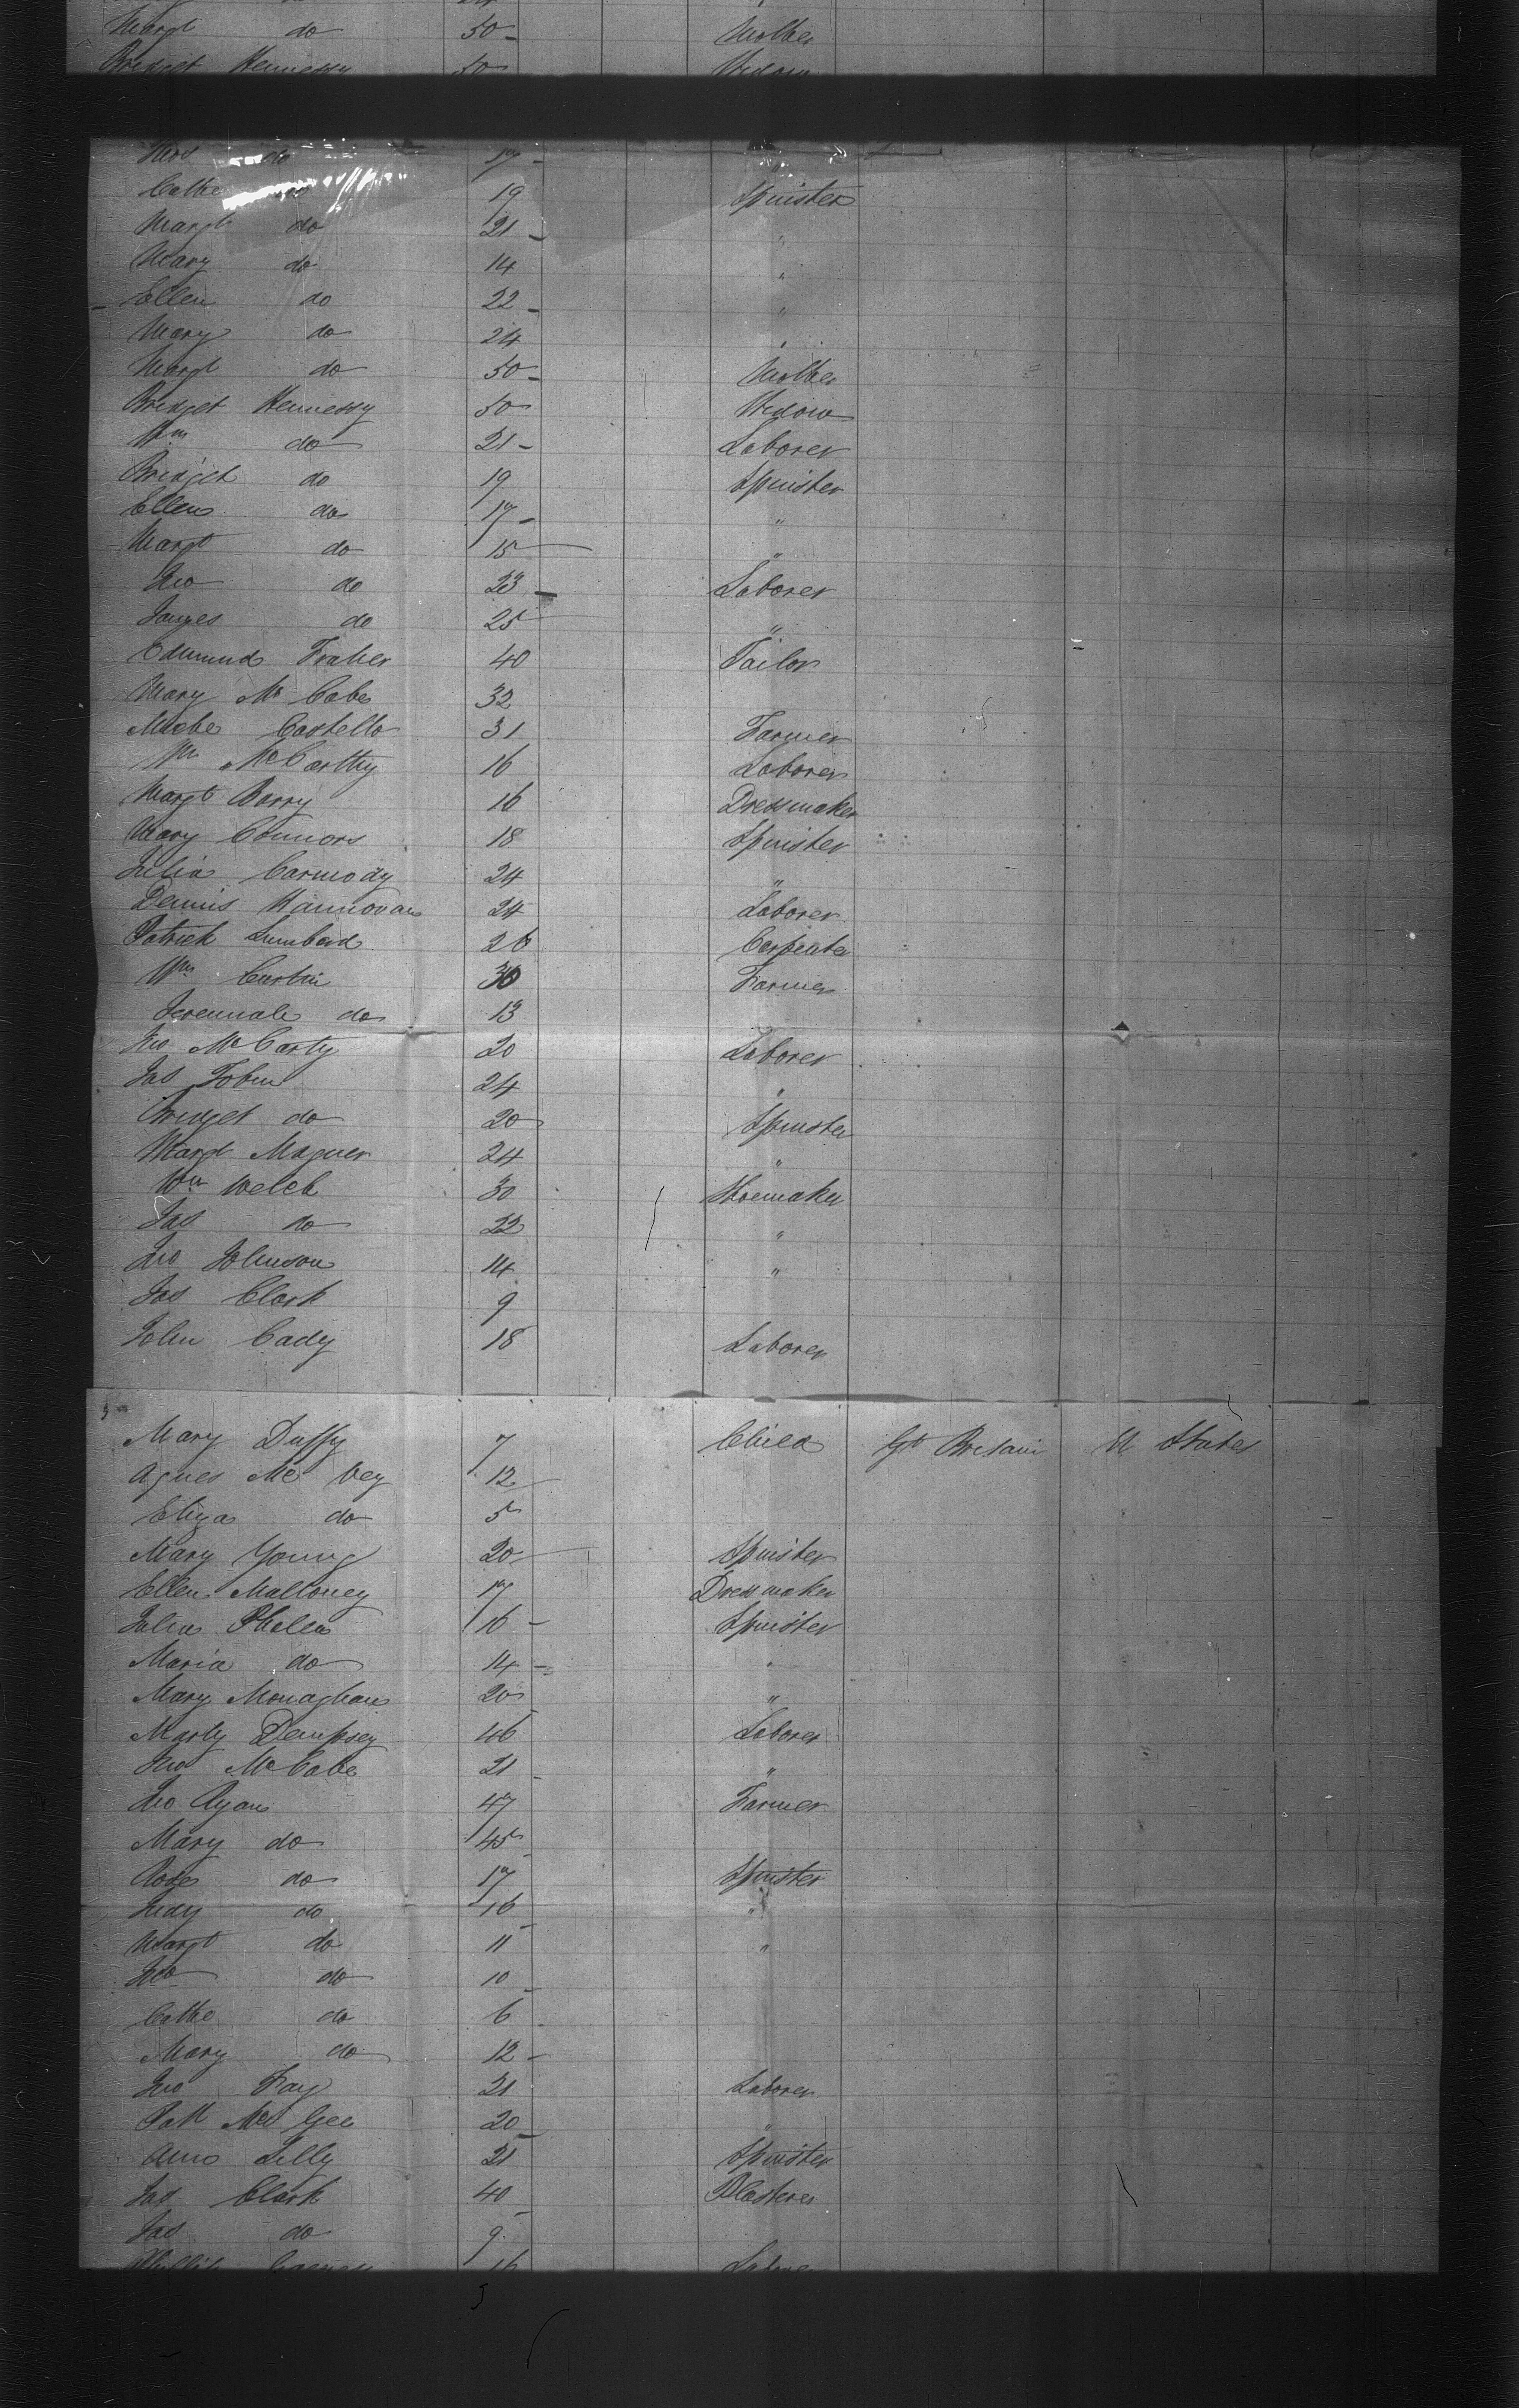 Margt do 50 Mother
Bridget Hennessy 50 Widow
do 17
Cathe do 19 Spinster
Margt do 21 "
Mary do 14 "
Ellen do 22 "
Mary do 24 "
Margt do 50 Mother
Bridget Hennessy 50 Widow
Wm do 21 Laborer
Bridget do 19 Spinster
Ellen do 17 "
Margt do 15 "
Jno do 23 Laborer
James do 25 "
Edmund Fraher 40 Tailor
Mary McCabe 32
Miche Costello 31 Farmer
Wm McCarthy 16 Laborer
Margt Barry 16 Dressmaker
Mary Connors 18 Spinster
Julia Carmody 24 "
Dennis Hannovan 24 Laborer
Patrick Lumbard 26 Carpenter
Wm Curtin 30 Farmer
Jeremiah do 13
Jno McCarty 20 Laborer
Jas Tobin 24 "
Bridget do 20 Spinster
Margt Magner 24 "
Wm Welch 30 Shoemaker
Jas do 22 "
Jno Johnson 14 "
Jas Clark 9
John Cady 18 Laborer
Mary Duffy 7 Child Gt Britain U States
Agnes McVey 12
Eliza do 5
Mary Young 20 Spinster
Ellen Malloney 17 Dressmaker
Julia Phelan 16 Spinster
Maria do 14 "
Mary Monaghan 20 "
Marty Dempsey 46 Laborer
Jno McCabe 21 "
Jno Ryan 47 Farmer
Mary do 45
Rose do 17 Spinster
Judy do 16 "
Margt do 11 "
Jno do 10
Cathe do 6
Mary do 12
Jno Fay 21 Laborer
Patt McGee 20 "
Ann Lilly 21 Spinster
Jas Clark 40 Plasterer
Jas do 9
16 Laborer